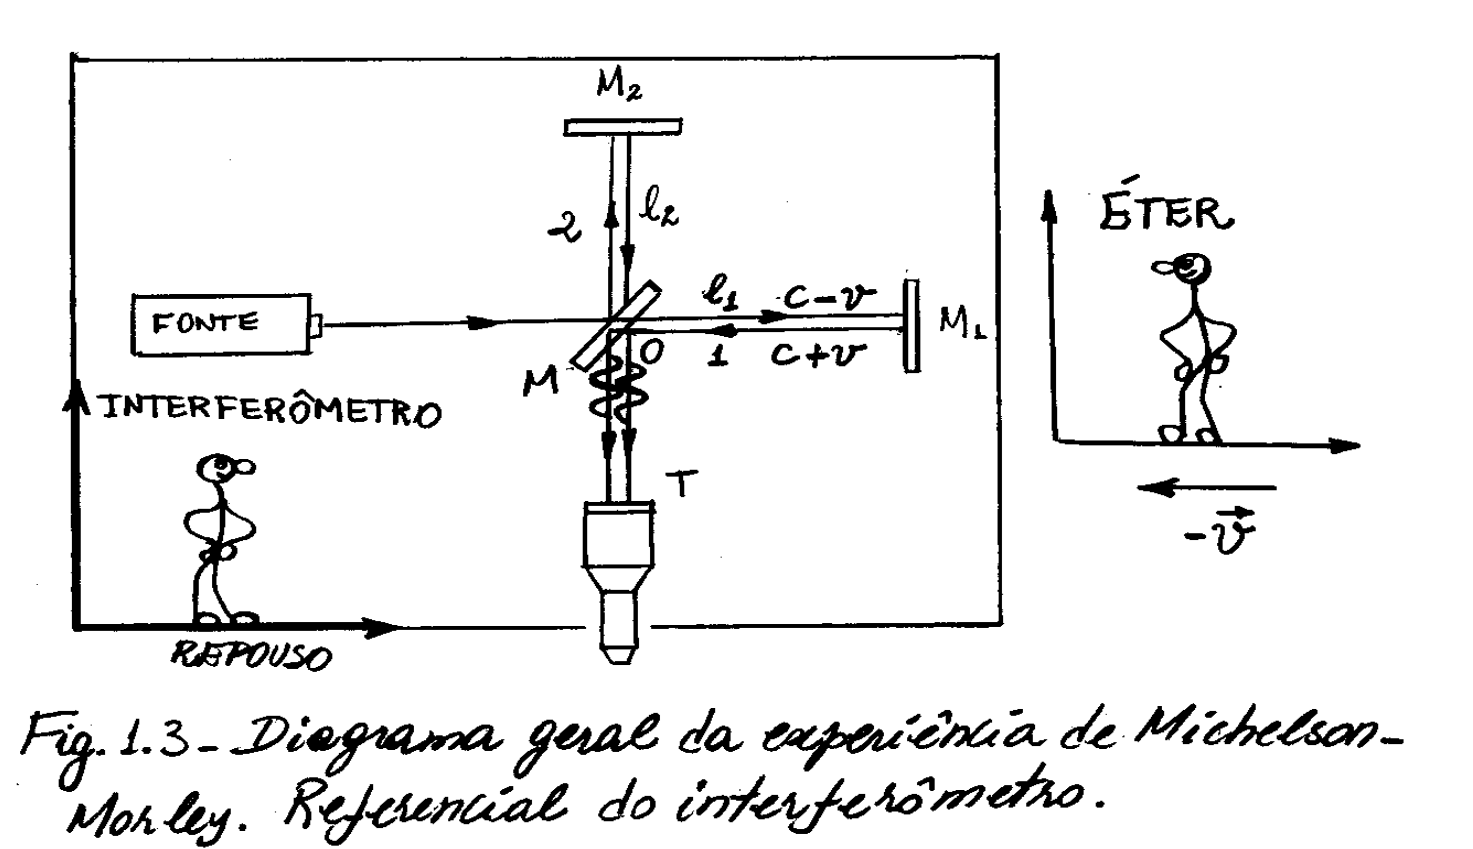 M2
ÉTER
2
l2
l1
C-v
FONTE
M1
O
1
C+v
M
INTERFERÔMETRO
T
-v⃗
REPOUSO
Fig. 1.3 - Diagrama geral da experiência de Michelson-
Morley. Referencial do interferômetro.